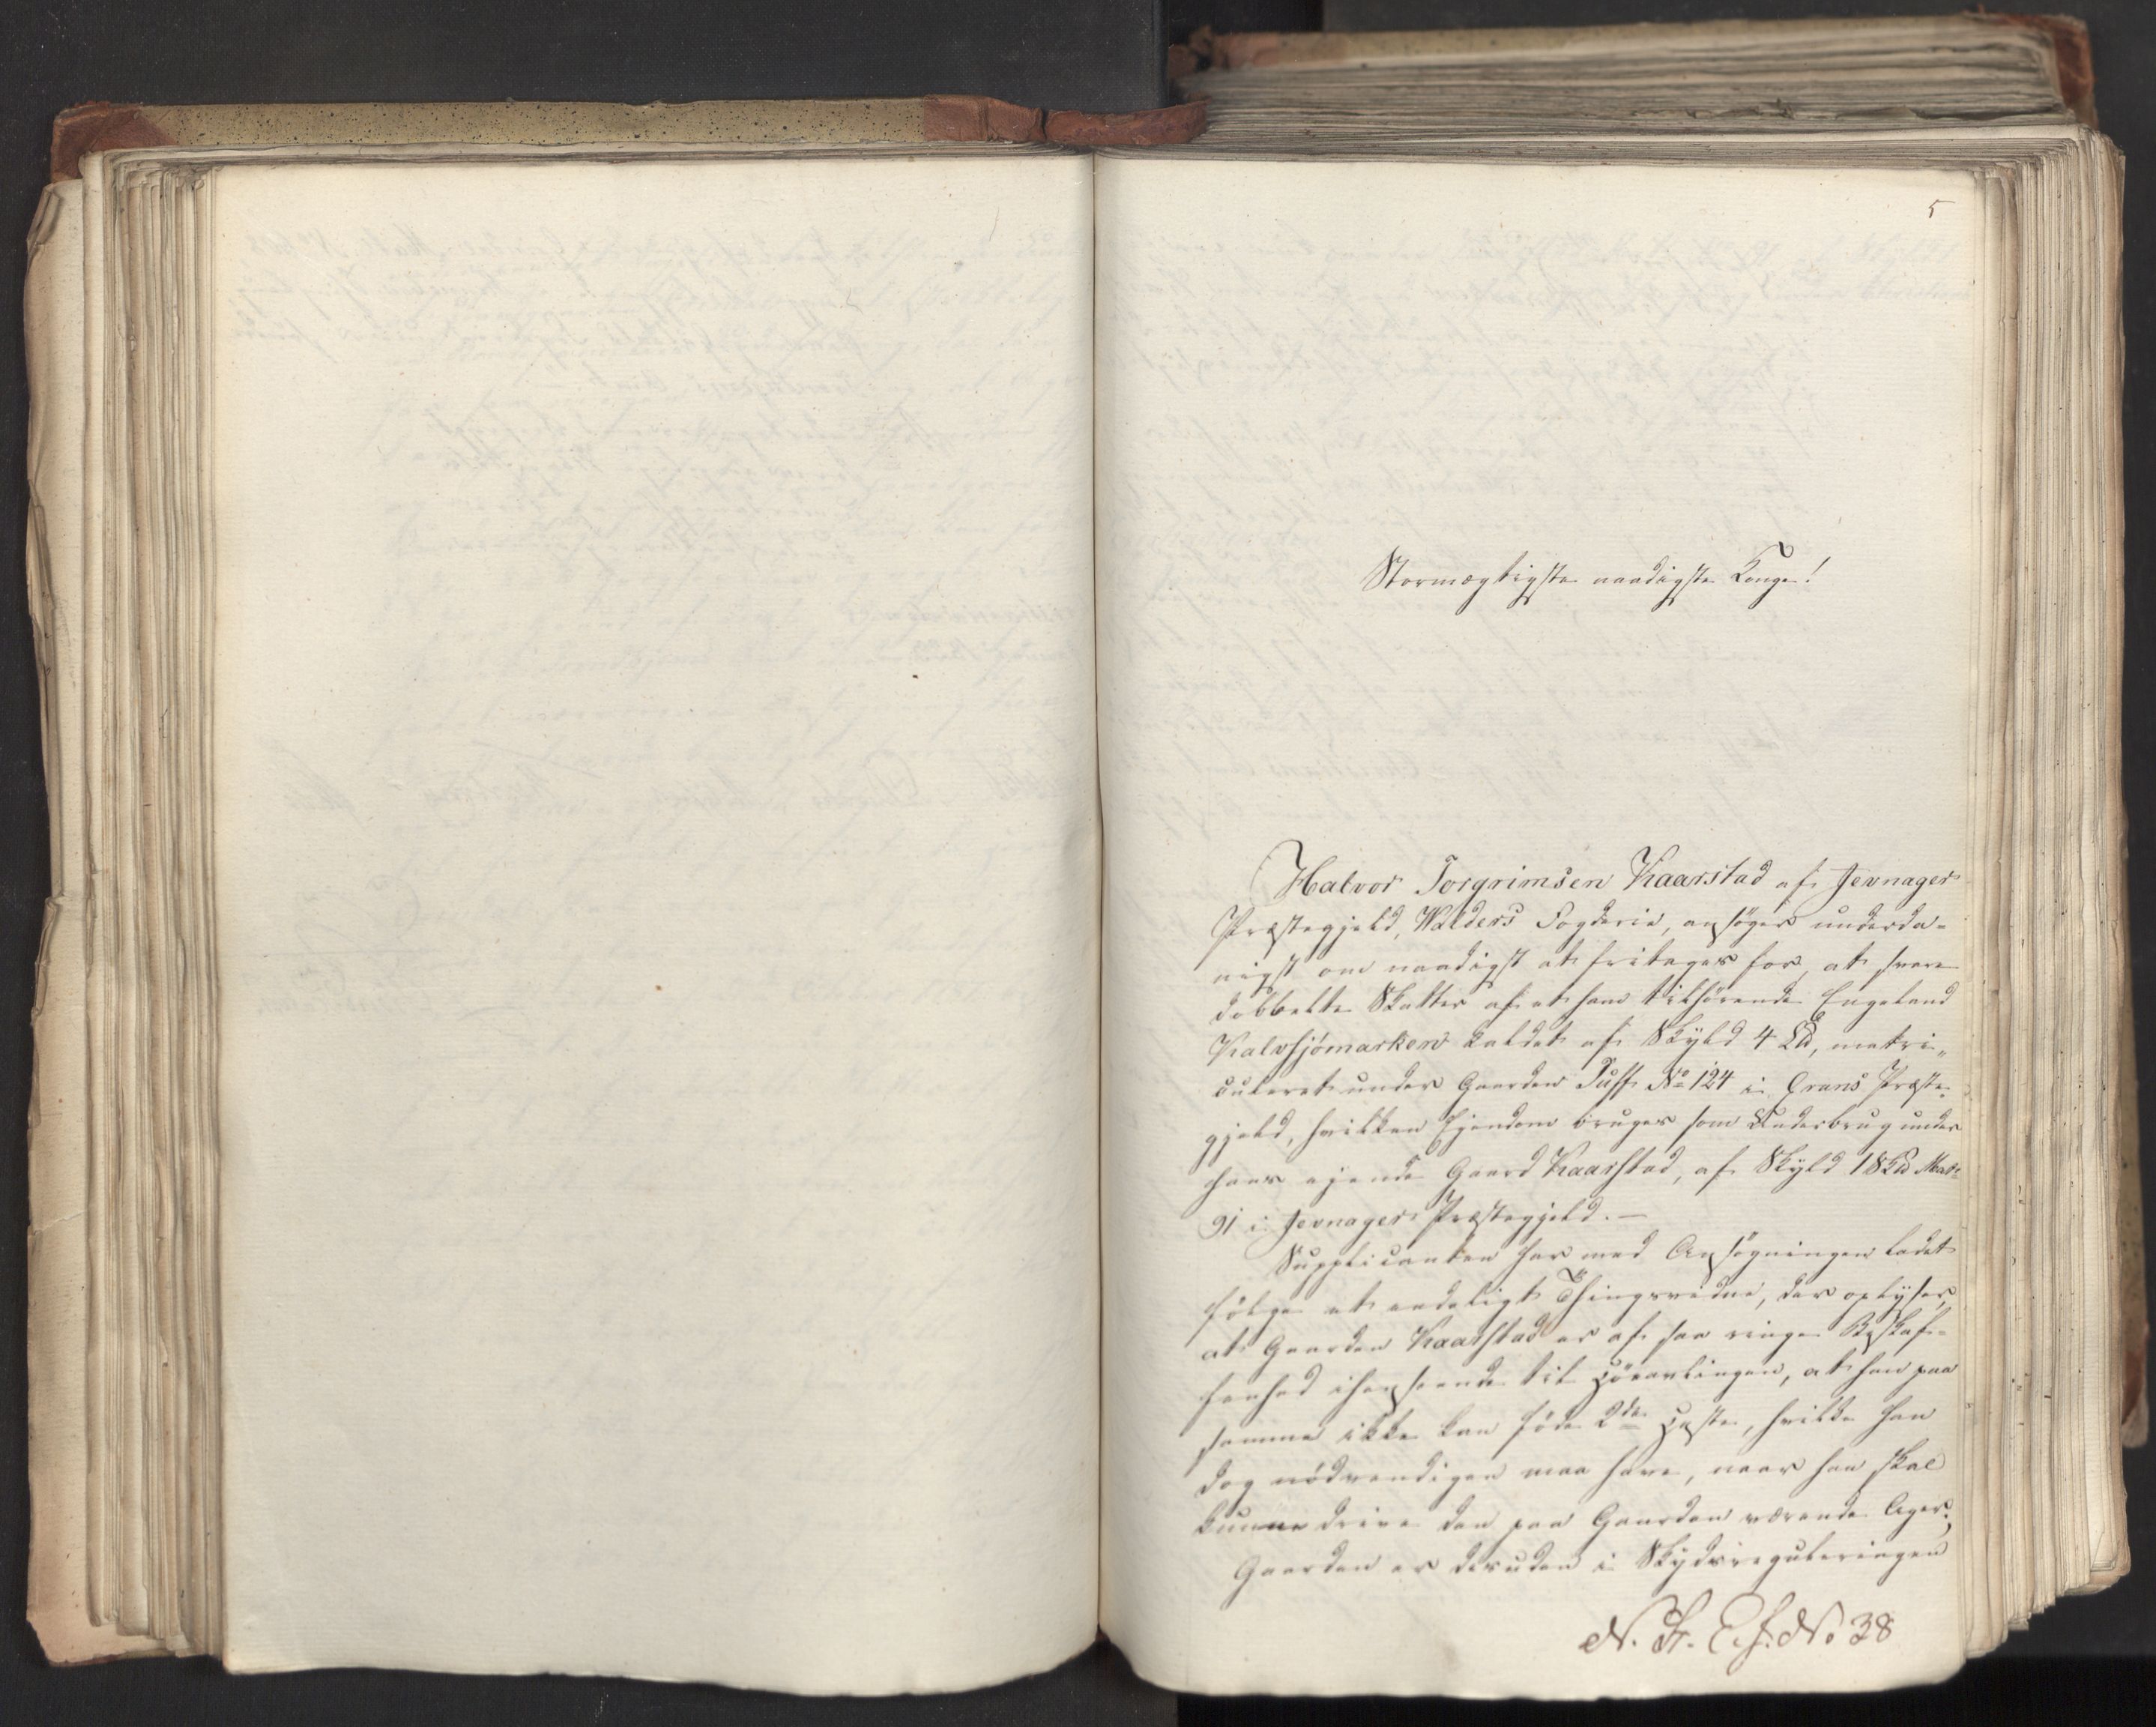 5
Stormægtigste naadigste Konge!
Halvor Torgrimsen Kaarstad af Jevnager
Præstegjeld, Walders Fogderie, ansøger underda-
nigst om naadigst at fritages for, at svare
dobbelte Skatter af et ham tilhørende Engeland
Kalvsjømarken kaldet af Skyld 4 L℔, matri-
culeret under Gaarden Tuff No 124 i Grans Præste-
gjeld, hvilken Ejendom bruges som Underbrug under
hans ejende Gaard Kaarstad, af Skyld 1 SkL℔ Mat:
91 i Jevnager Præstegjeld.—
Supplicanten har med Ansøgningen ladet
følge et endeligt Thingsvidne, der oplyser,
at Gaarden Kaarstad er af saa ringe Beskaf-
fenhed ihenseende til Høeavlingen, at han paa
samme ikke kan føde 2de Heste, hvilke han
dog nødvendigen maa have, naar han skal
kunne drive den paa Gaarden værende Ager;
Gaarden er desuden i Skydsreguleringen
N. St. E. f. No 38